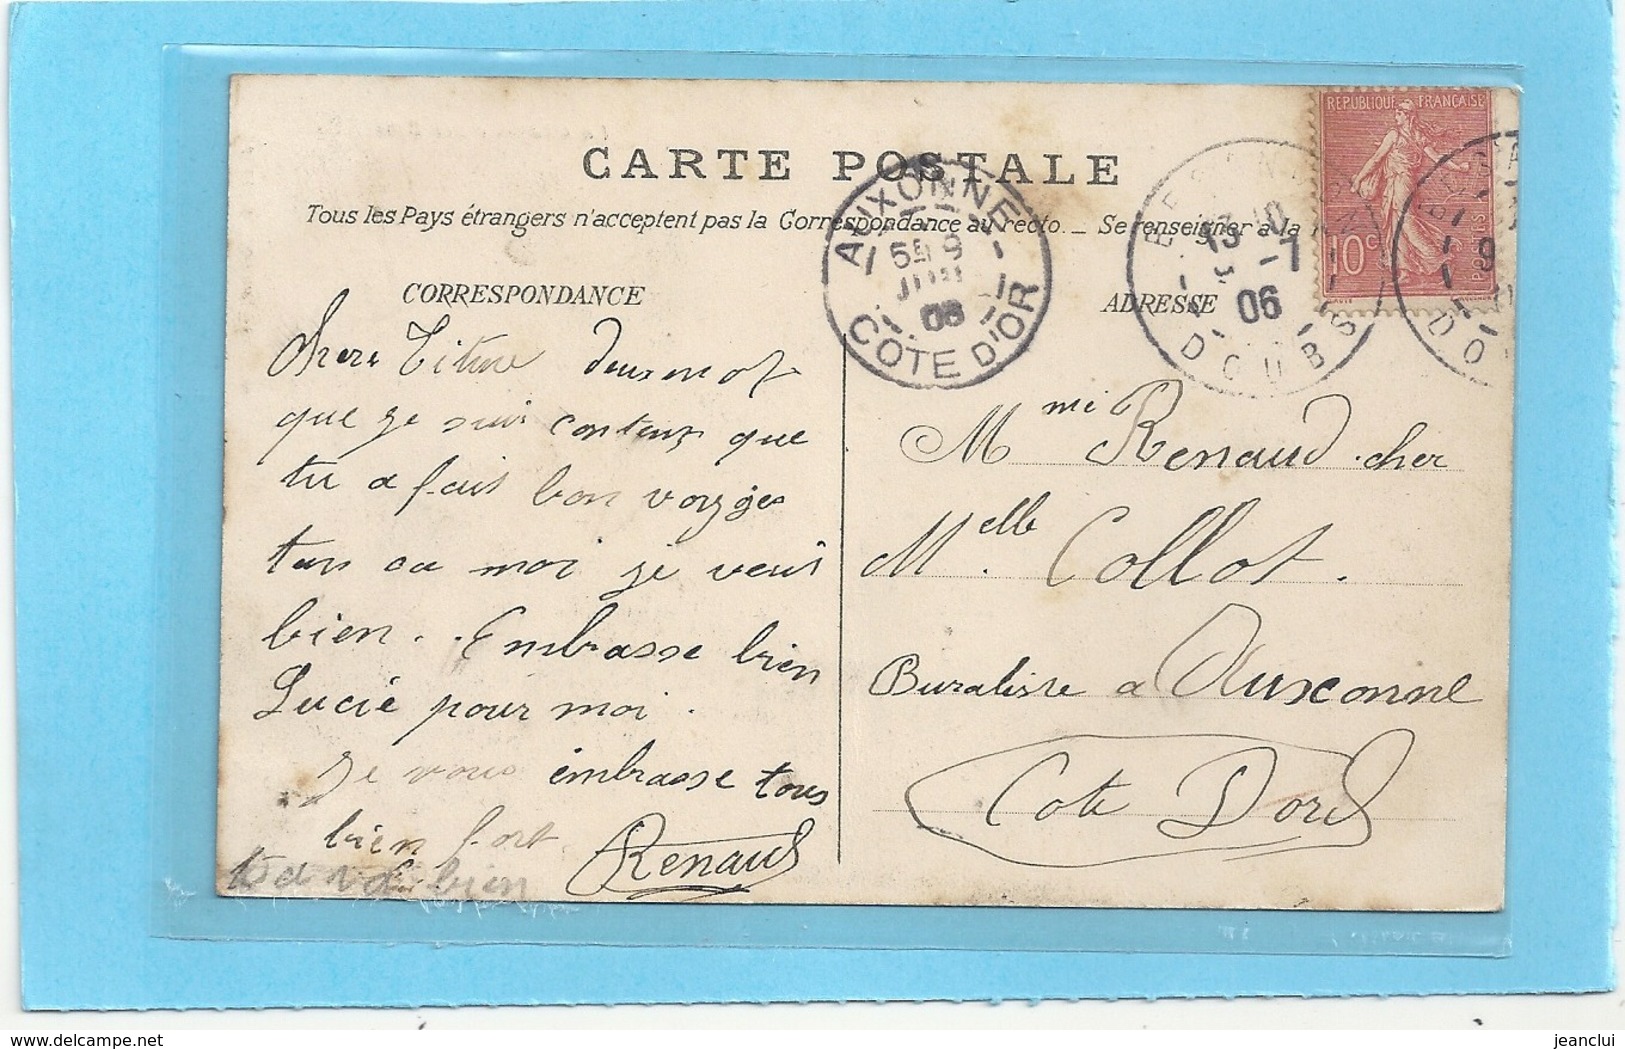 CARTE POSTALE
Tous les Pays étrangers n'acceptent pas la Correspondance au recto. _ Se renseigner à la
CORRESPONDANCE
ADRESSE
REPUBLIQUE FRANÇAISE
10c
POSTES
AUXONNE
COTE D'OR
06
DOUBS
06
Chere Titine deux mot
que je suis contens que
tu a fait bon voyge
tan ca moi je veuis
bien. . Embrasse bien
Lucie pour moi .
Je vous embrasse tous
bien fort
Renaud
bien
Mme Renaud cher
Melle Collot.
Buraliste a Auxonne
Cote Dord
jeanclui